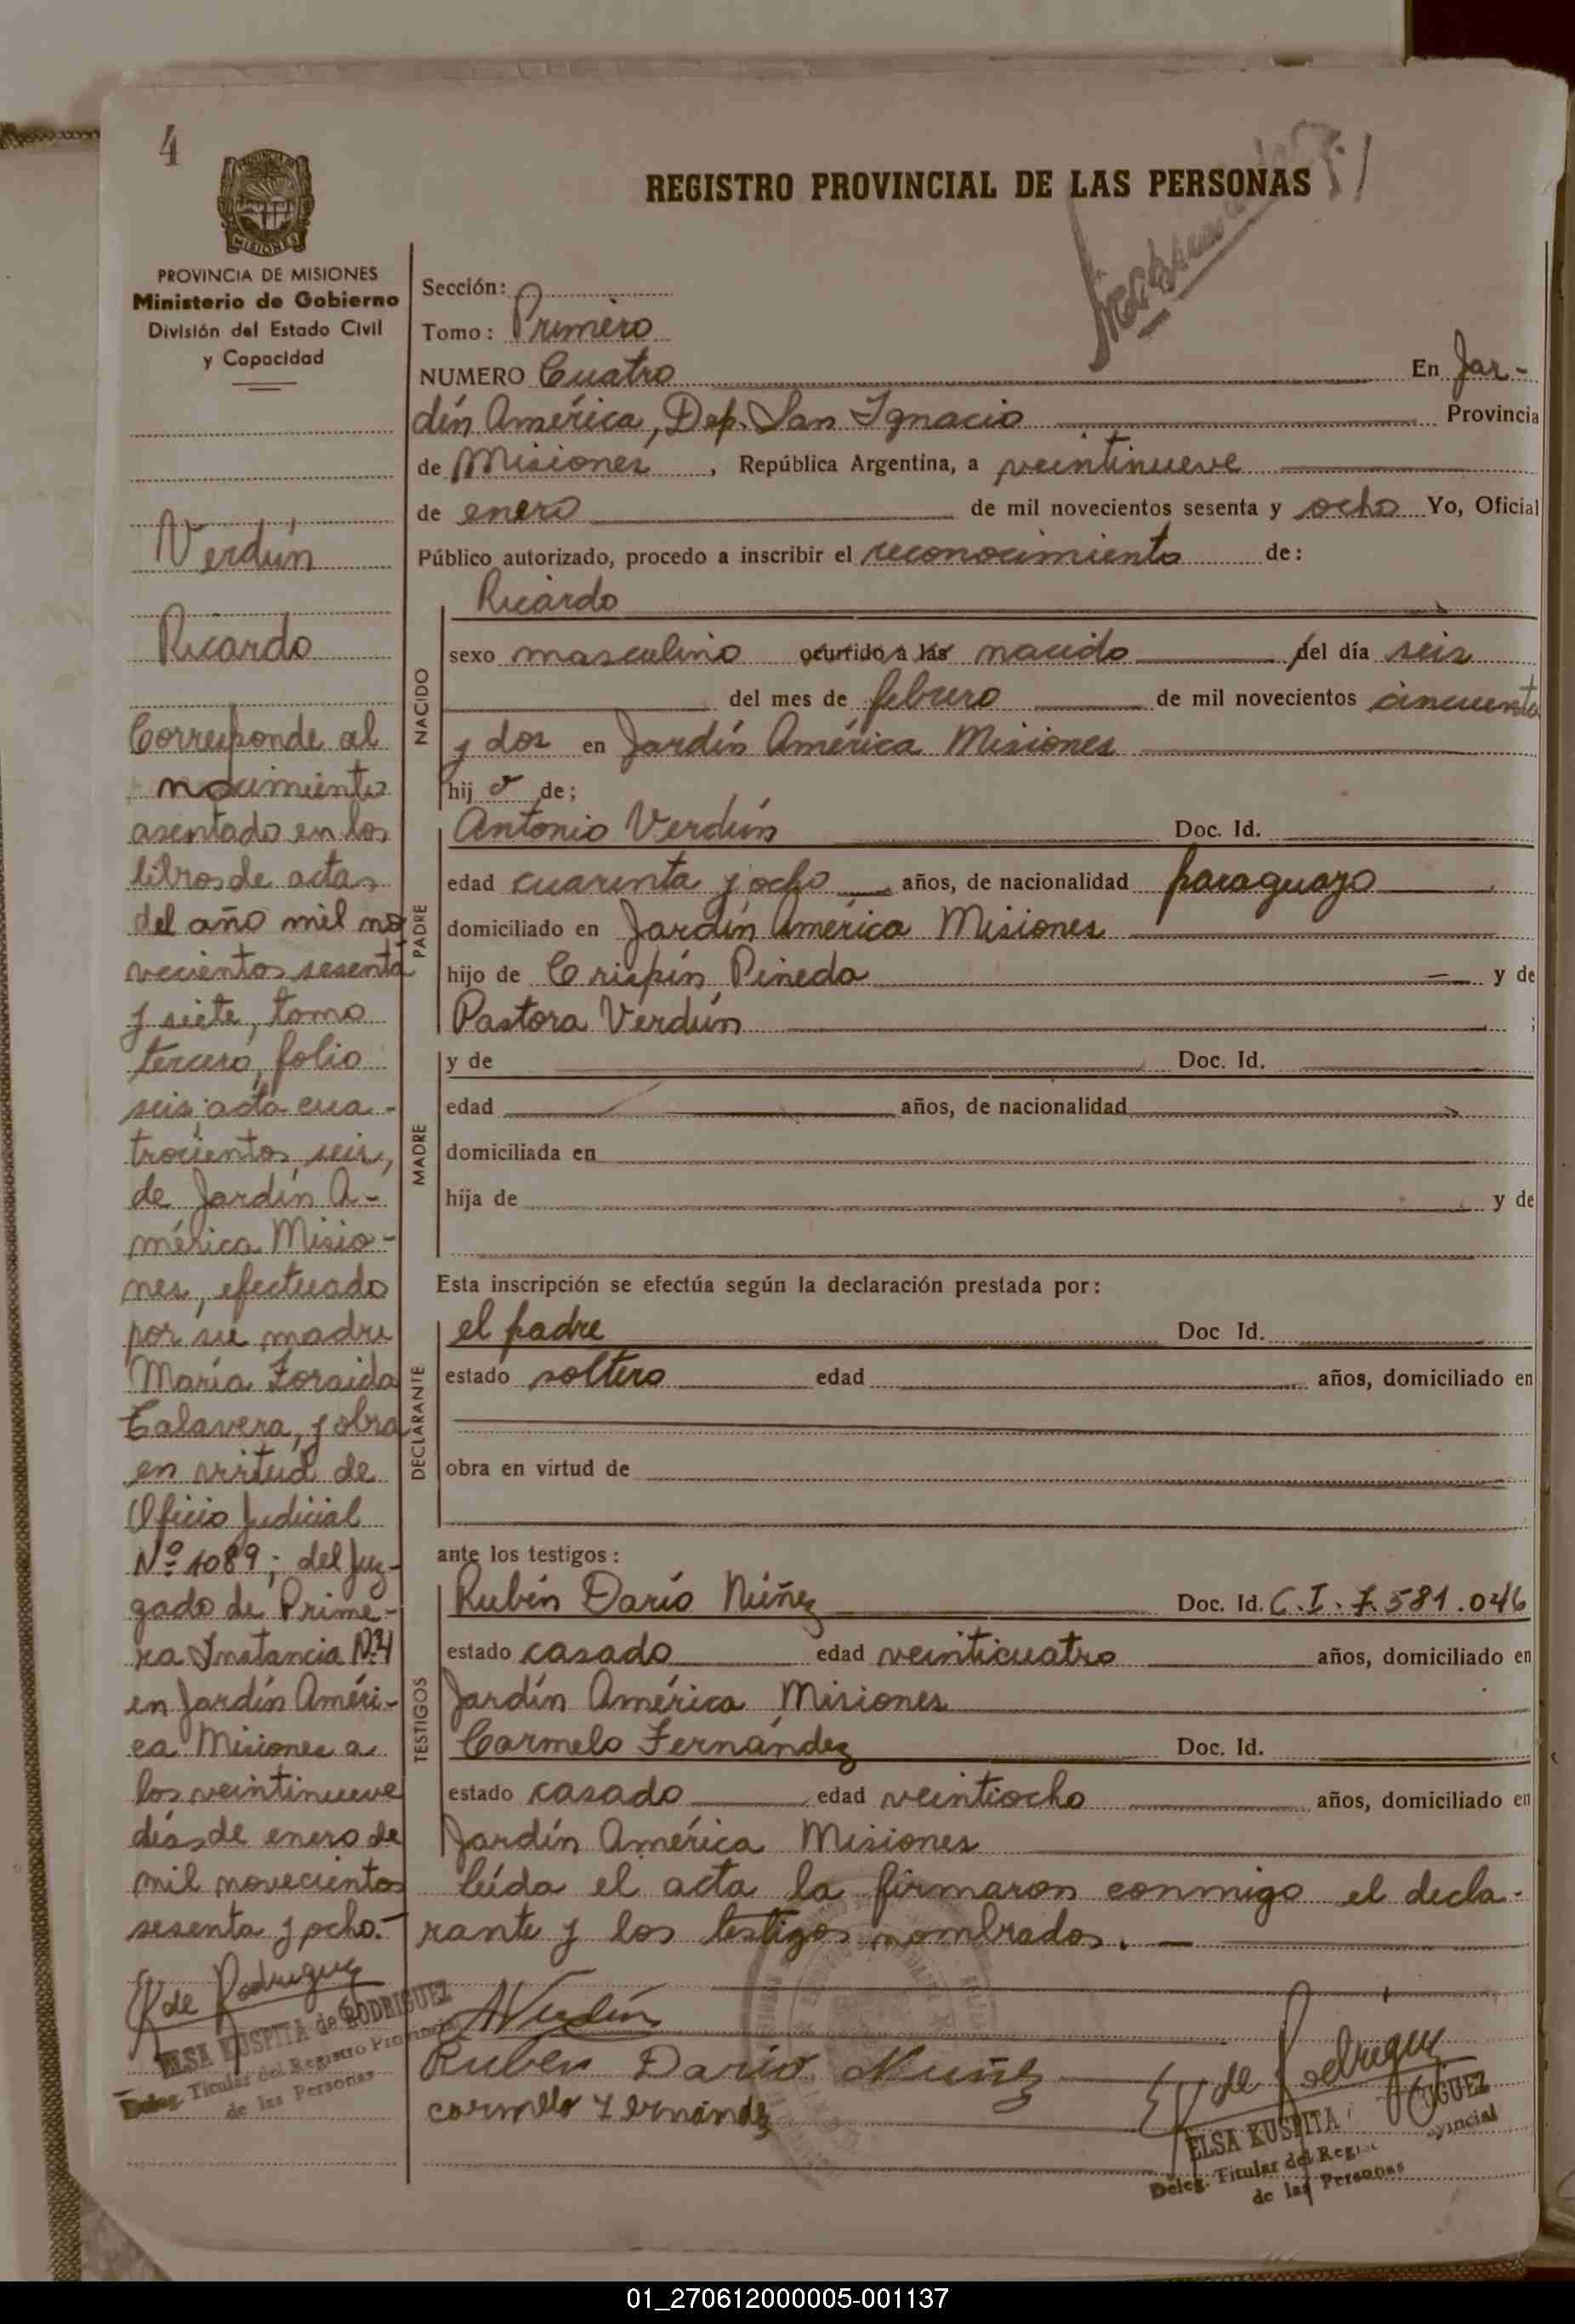 4
MISIONES
PROVINCIA DE MISIONES
Ministerio de Gobierno
División del Estado Civil
y Capacidad
Verdún
Ricardo
Corresponde al
nacimiento
asentado en los
libros de actas
del año mil no
vecientos sesenta
y siete, tomo
tercero, folio
seis, acta cua-
trocientos seis,
de Jardín A-
mérica Misio-
nes, efectuado
por su madre
María Zoraida
Talavera, y obra
en virtud de
Oficio Judicial
Nº 1089; del Juz-
gado de Prime-
ra Instancia Nº4
en Jardín Améri-
ca Misiones a
los veintinueve
días de enero de
mil novecientos
sesenta y ocho.-
de Rodriguez
ELSA KUSPITA de RODRIGUEZ
Deleg. Titular del Registro Provincial
de las Personas
REGISTRO PROVINCIAL DE LAS PERSONAS
Sección:
Tomo: Primero
NUMERO Cuatro En Jar-
dín América, Dep. San Ignacio Provincia
de Misiones, República Argentina, a veintinueve
de enero de mil novecientos sesenta y ocho Yo, Oficial
Público autorizado, procedo a inscribir el reconocimiento de:
NACIDO
Ricardo
sexo masculino ocurrido a las nacido del día seis
del mes de febrero de mil novecientos cincuenta
y dos en Jardín América Misiones
hij o de;
PADRE
Antonio Verdún Doc. Id.
edad cuarenta y ocho años, de nacionalidad paraguayo
domiciliado en Jardín América Misiones
hijo de Crispín Pineda y de
Pastora Verdún ;
MADRE
y de Doc. Id.
edad años, de nacionalidad
domiciliada en
hija de y de
Esta inscripción se efectúa según la declaración prestada por:
DECLARANTE
el padre Doc Id.
estado soltero edad años, domiciliado en
obra en virtud de
ante los testigos:
TESTIGOS
Rubén Darío Núñez Doc. Id. C.I. 7.581.046
estado casado edad veinticuatro años, domiciliado en
Jardín América Misiones
Carmelo Fernández Doc. Id.
estado casado edad veintiocho años, domiciliado en
Jardín América Misiones
leída el acta la firmaron conmigo el decla-
rante y los testigos nombrados.
AVerdún
Ruben Dario Nuñez
carmelo Fernández
de Rodriguez
ELSA KUSPITA
Deleg. Titular del Regis
de las Personas
01_270612000005-001137